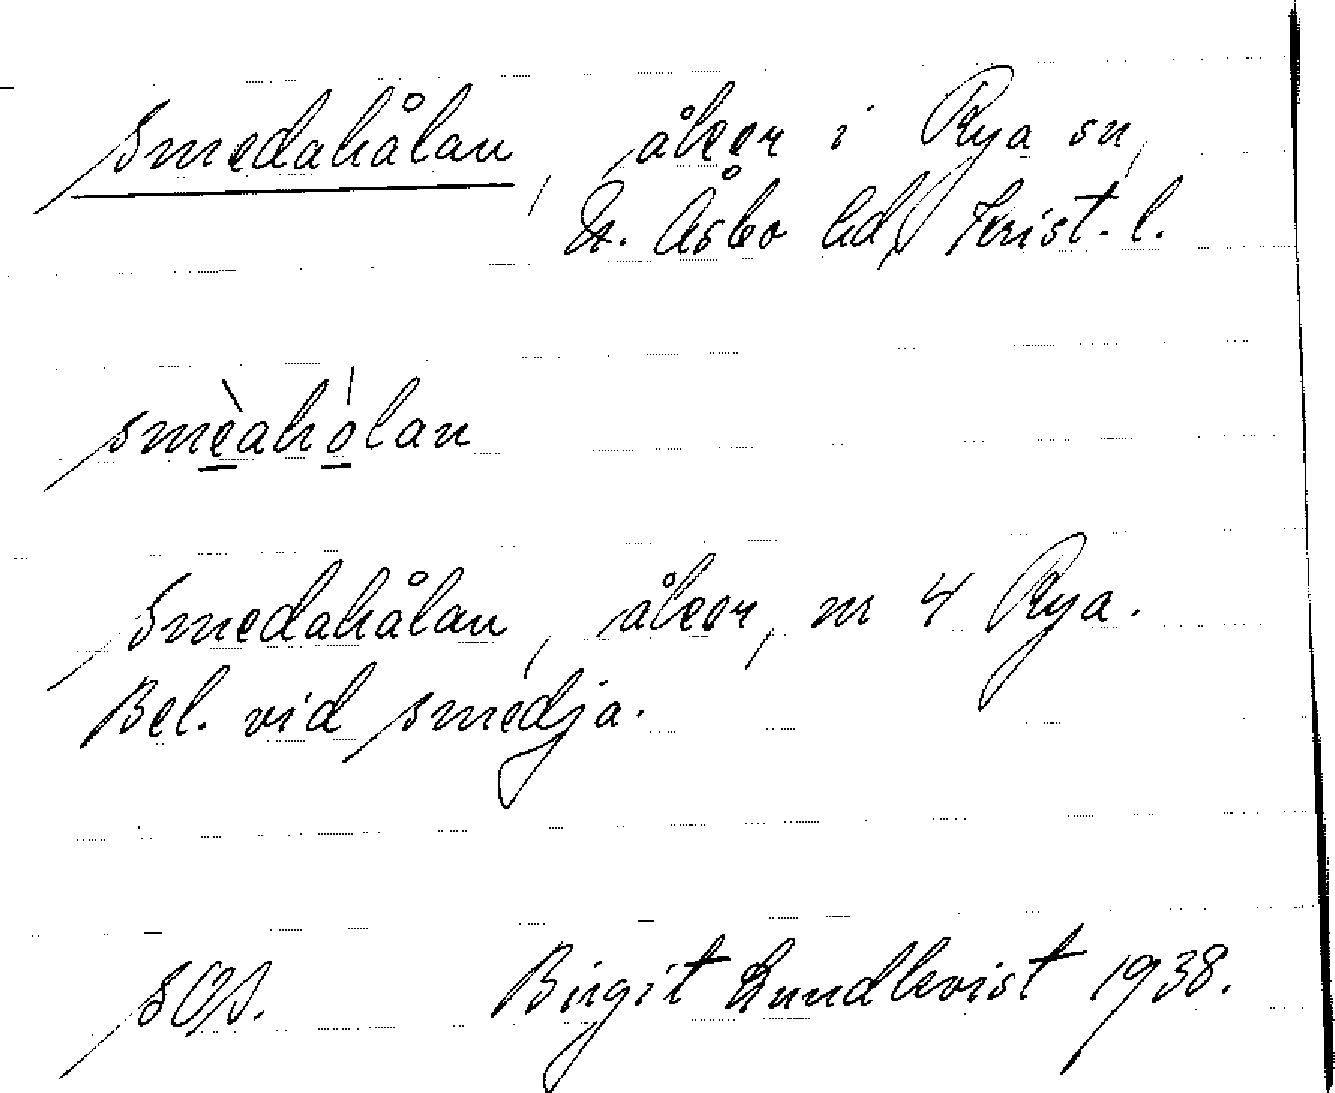 Smedahålan, åker i Rya sn,
N. Åsbo hd, Krist. l.
smèahòlan
Smedahålan, åker, nr 4 Rya.
Bel. vid smedja.
SOS. Birgit Lundkvist 1938.